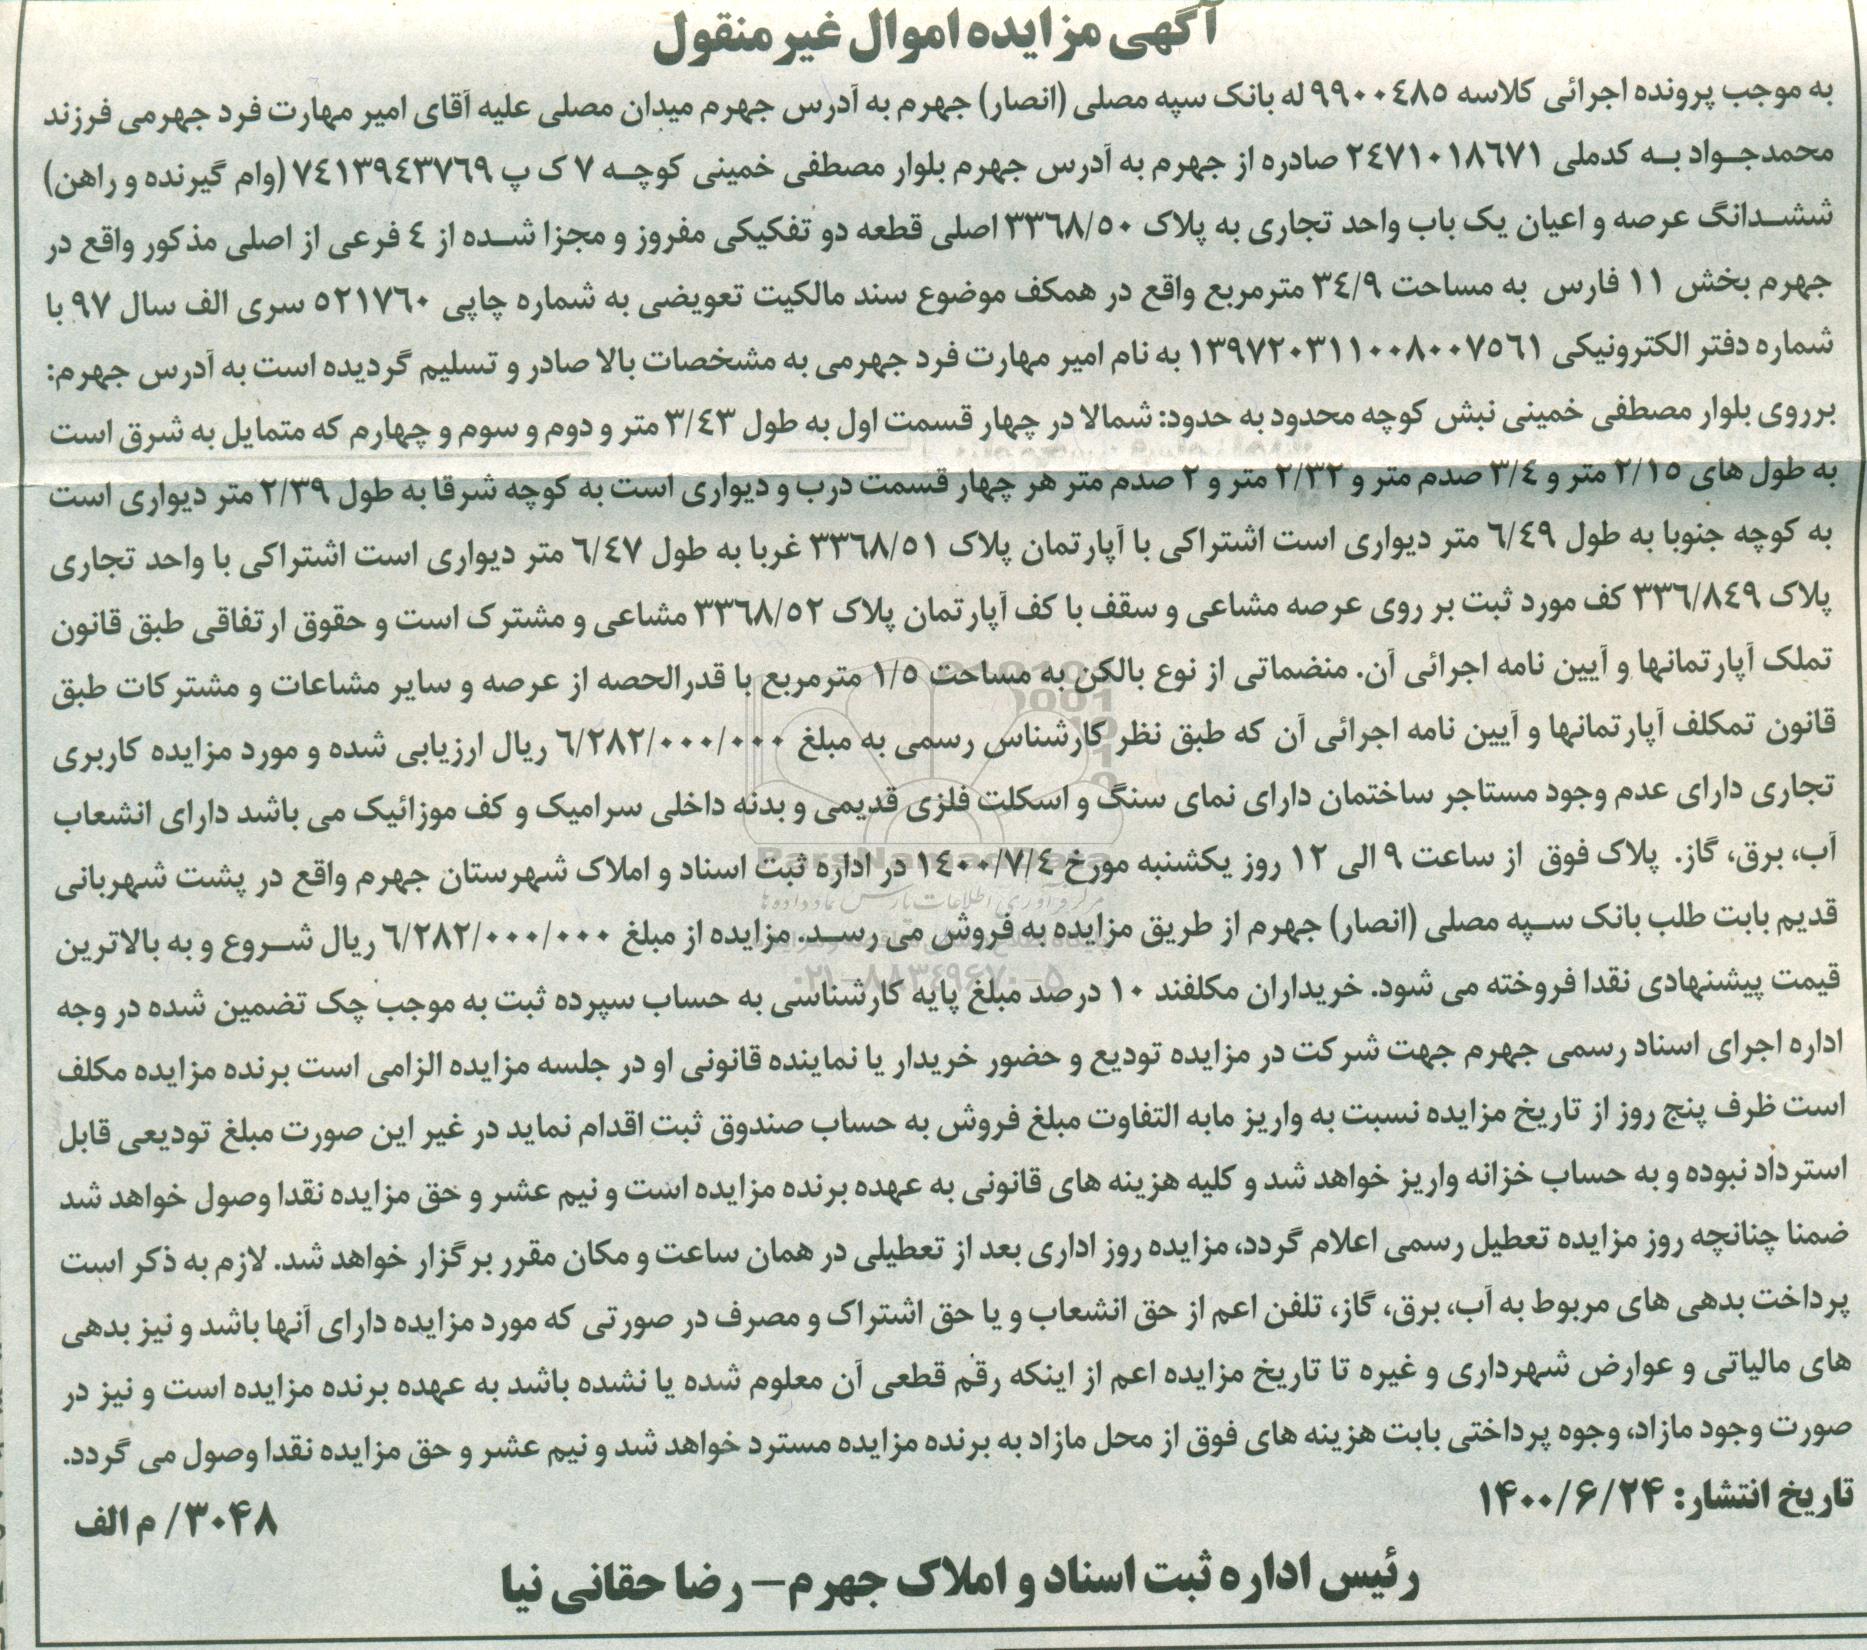 آگهی مزایده اموال غیر منقول
به موجب پرونده اجرائی کلاسه ۹۹۰۰۴۸۵ له بانک سپه مصلی (انصار) جهرم به آدرس جهرم میدان مصلی علیه آقای امیر مهارت فرد جهرمی فرزند
محمدجـواد بـه کدملی ۲۴۷۱۰۱۸۶۷۱ صادره از جهرم به آدرس جهرم بلوار مصطفی خمینی کوچـه ۷ ک پ ۷۴۱۳۹۴۳۷۶۹ (وام گیرنده و راهن)
ششـدانگ عرصه و اعیان یک باب واحد تجاری به پلاک ۳۳۶۸/۵۰ اصلی قطعه دو تفکیکی مفروز و مجزا شـده از ۴ فرعی از اصلی مذکور واقع در
جهرم بخش ۱۱ فارس به مساحت ۳۴/۹ مترمربع واقع در همکف موضوع سند مالکیت تعویضی به شماره چاپی ۵۲۱۷۶۰ سری الف سال ۹۷ با
شماره دفتر الکترونیکی ۱۳۹۷۲۰۳۱۱۰۰۸۰۰۷۵۶۱ به نام امیر مهارت فرد جهرمی به مشخصات بالا صادر و تسلیم گردیده است به آدرس جهرم:
برروی بلوار مصطفی خمینی نبش کوچه محدود به حدود: شمالا در چهار قسمت اول به طول ۳/۴۳ متر و دوم و سوم و چهارم که متمایل به شرق است
به طول های ۲/۱۵ متر و ۳/۴ صدم متر و ۲/۳۲ متر و ۲ صدم متر هر چهار قسمت درب و دیواری است به کوچه شرقا به طول ۲/۳۹ متر دیواری است
به کوچه جنوبا به طول ۶/۴۹ متر دیواری است اشتراکی با آپارتمان پلاک ۳۳۶۸/۵۱ غربا به طول ۶/۴۷ متر دیواری است اشتراکی با واحد تجاری
پلاک ۳۳۶/۸۴۹ کف مورد ثبت بر روی عرصه مشاعی و سقف با کف آپارتمان پلاک ۳۳۶۸/۵۲ مشاعی و مشترک است و حقوق ارتفاقی طبق قانون
تملک آپارتمانها و آیین نامه اجرائی آن. منضماتی از نوع بالکن به مساحت ۱/۵ مترمربع با قدرالحصه از عرصه و سایر مشاعات و مشترکات طبق
قانون تمکلف آپارتمانها و آیین نامه اجرائی آن که طبق نظر کارشناس رسمی به مبلغ ۶/۲۸۲/۰۰۰/۰۰۰ ریال ارزیابی شده و مورد مزایده کاربری
تجاری دارای عدم وجود مستاجر ساختمان دارای نمای سنگ و اسکلت فلزی قدیمی و بدنه داخلی سرامیک و کف موزائیک می باشد دارای انشعاب
آب، برق، گاز. پلاک فوق از ساعت ۹ الی ۱۲ روز یکشنبه مورخ ۱۴۰۰/۷/۴ در اداره ثبت اسناد و املاک شهرستان جهرم واقع در پشت شهربانی
قدیم بابت طلب بانک سـپه مصلی (انصار) جهرم از طریق مزایده به فروش می رسـد. مزایده از مبلغ ۶/۲۸۲/۰۰۰/۰۰۰ ریال شـروع و به بالاترین
قیمت پیشنهادی نقدا فروخته می شود. خریداران مکلفند ۱۰ درصد مبلغ پایه کارشناسی به حساب سپرده ثبت به موجب چک تضمین شده در وجه
اداره اجرای اسناد رسمی جهرم جهت شرکت در مزایده تودیع و حضور خریدار یا نماینده قانونی او در جلسه مزایده الزامی است برنده مزایده مکلف
است ظرف پنج روز از تاریخ مزایده نسبت به واریز مابه التفاوت مبلغ فروش به حساب صندوق ثبت اقدام نماید در غیر این صورت مبلغ تودیعی قابل
استرداد نبوده و به حساب خزانه واریز خواهد شد و کلیه هزینه های قانونی به عهده برنده مزایده است و نیم عشر و حق مزایده نقدا وصول خواهد شد
ضمنا چنانچه روز مزایده تعطیل رسمی اعلام گردد، مزایده روز اداری بعد از تعطیلی در همان ساعت و مکان مقرر برگزار خواهد شد. لازم به ذکر است
پرداخت بدهی های مربوط به آب، برق، گاز، تلفن اعم از حق انشعاب و یا حق اشتراک و مصرف در صورتی که مورد مزایده دارای آنها باشد و نیز بدهی
های مالیاتی و عوارض شهرداری و غیره تا تاریخ مزایده اعم از اینکه رقم قطعی آن معلوم شده یا نشده باشد به عهده برنده مزایده است و نیز در
صورت وجود مازاد، وجوه پرداختی بابت هزینه های فوق از محل مازاد به برنده مزایده مسترد خواهد شد و نیم عشر و حق مزایده نقدا وصول می گردد.
تاریخ انتشار: ۱۴۰۰/۶/۲۴
۳۰۴۸/ م الف
رئیس اداره ثبت اسناد و املاک جهرم– رضا حقانی نیا
۰۲۱-۸۸۳۴۹۶۷۰-۵